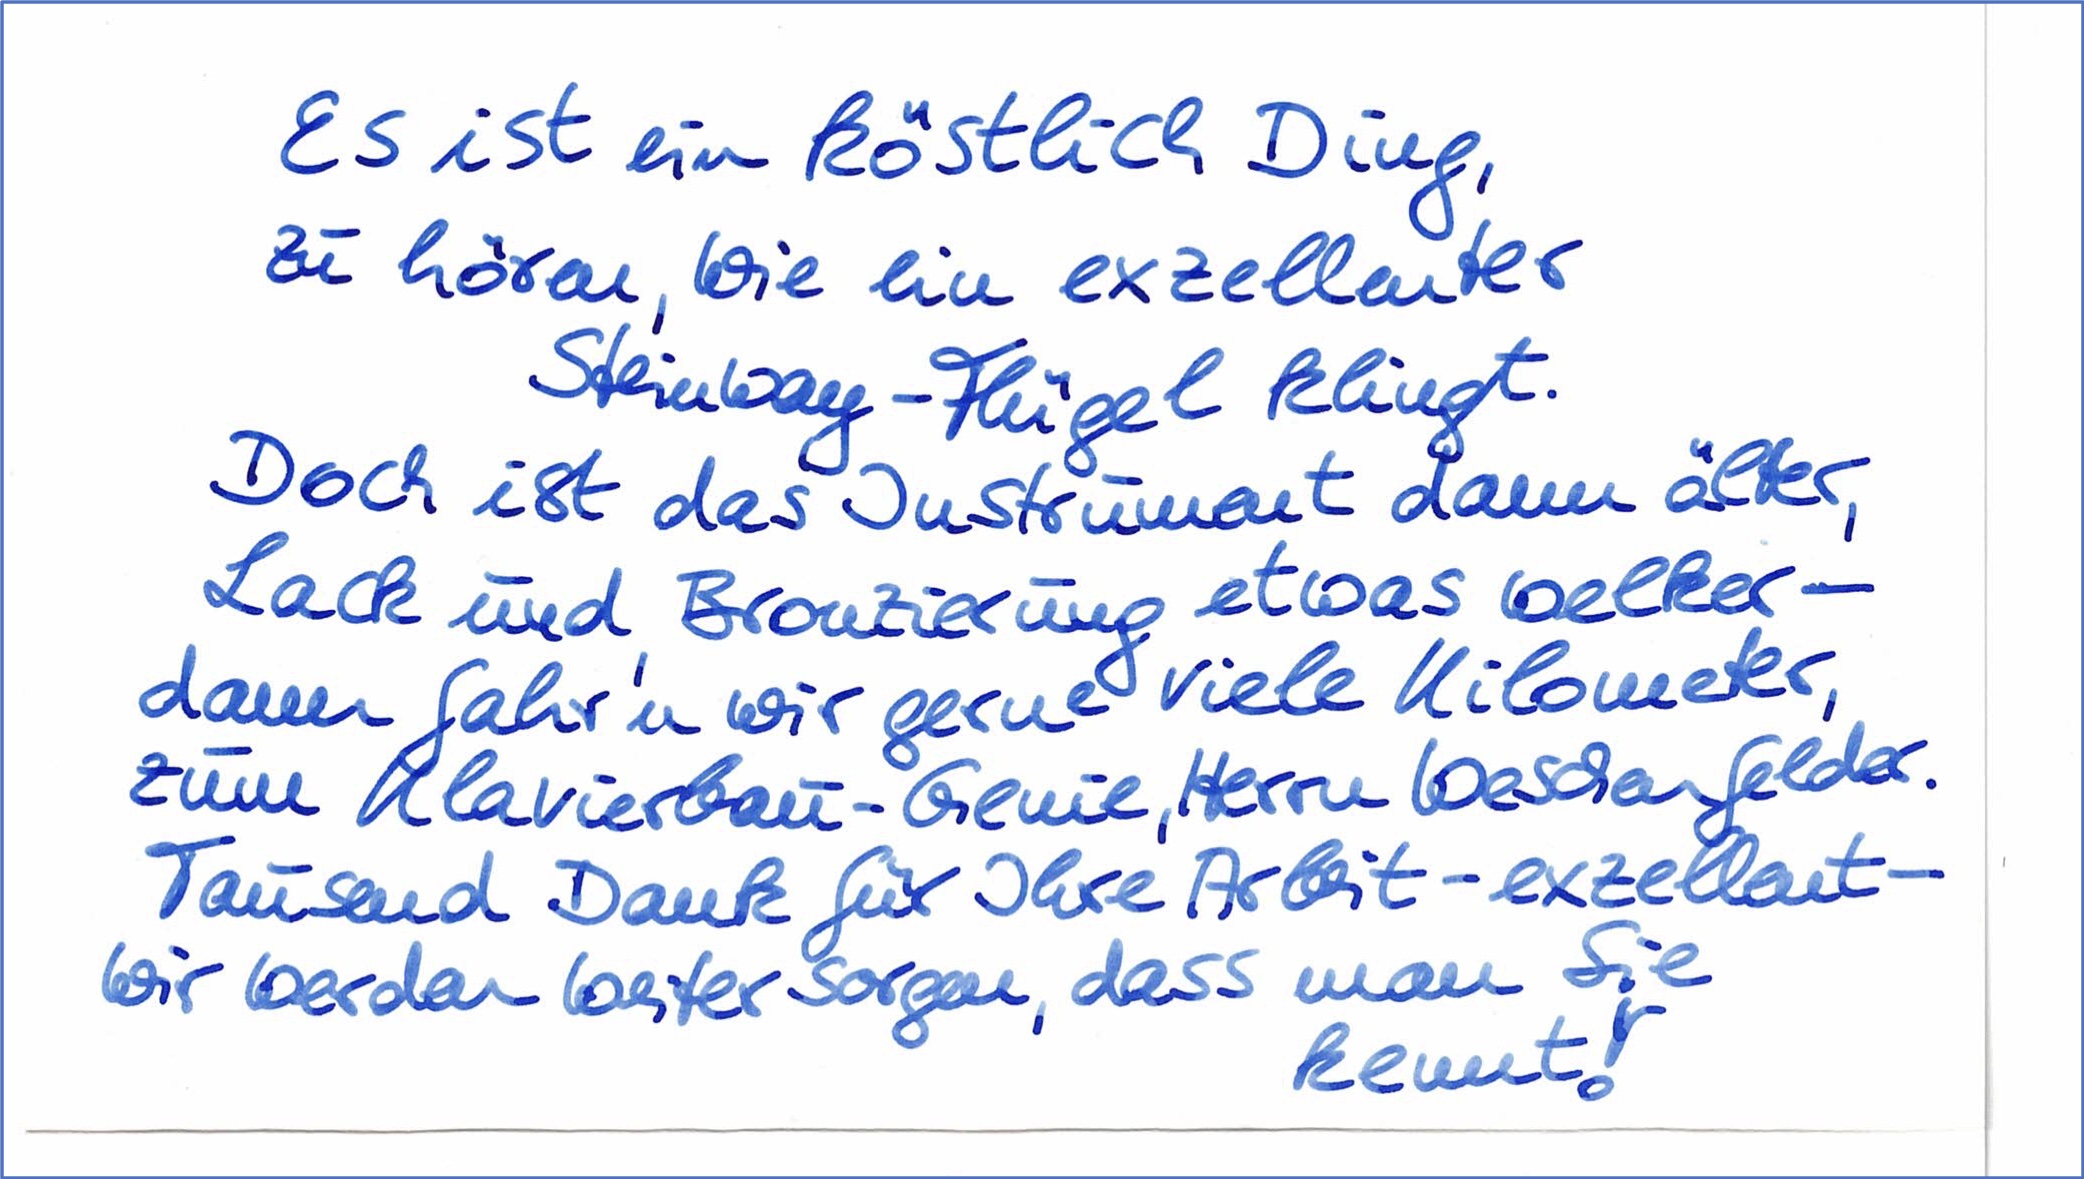 Es ist ein köstlich Ding,
zu hören, wie ein exzellenter
Steinway-Flügel klingt.
Doch ist das Instrument dann älter,
Lack und Bronzierung etwas welker –
dann fahr'n wir gerne viele Kilometer,
zum Klavierbau-Genie, Herrn Weschenfelder.
Tausend Dank für Ihre Arbeit - exzellent –
wir werden weiter sorgen, dass man Sie
kennt!